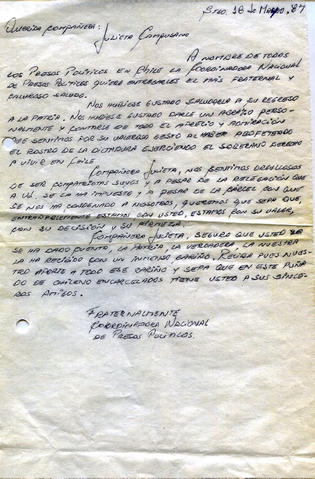 Stgo, 18 de Mayo, 87
Querida Compañera:
Julieta Campusano
A nombre de todos
los Presos Políticos en Chile la Coordinadora Nacional
de Presos Políticos quiere entregarle el más fraternal y
caluroso saludo.
Nos hubiese gustado saludarla a su regreso
a la patria. Nos hubiese gustado darle un abrazo perso-
nalmente y contarle de todo el afecto y admiración
que sentimos por su valeroso gesto al haber abofeteado
el rostro de la dictadura ejerciendo el soberano derecho
a vivir en Chile
Compañera Julieta, nos sentimos orgullosos
de ser compatriotas suyos y a pesar de la relegación que
a Ud. se le ha impuesto y a pesar de la cárcel con que
se nos ha condenado a nosotros, queremos que sepa que,
estamos con usted, estamos con su valor,
con su decisión y su firmeza.
Compañera Julieta, seguro que usted
se ha dado cuenta, la patria, la verdadera, la nuestra
la ha recibido con un inmenso cariño. Reciba pues nues-
tro aporte a todo ese cariño y sepa que en este puña-
do de chilenos encarcelados tiene usted a sus since-
ros amigos.
Fraternalmente
Coordinadora Nacional
de Presos Políticos.